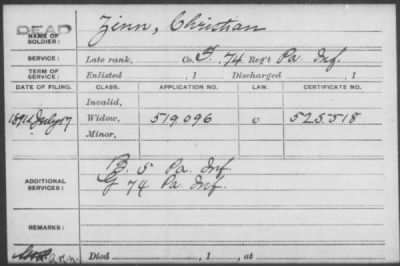 DEAD
NAME OF SOLDIER: Zinn, Christian
SERVICE: Late rank, Co. F. 74 Reg't Pa. Inf.
TERM OF SERVICE: Enlisted , 1 Discharged , 1
DATE OF FILING. CLASS. APPLICATION NO. LAW. CERTIFICATE NO.
Invalid,
1891 July 17 Widow, 519096 525518
Minor,
ADDITIONAL SERVICES: B. 5 Pa. Inf.
G 74 Pa. Inf.
REMARKS:
Died , 1 , at